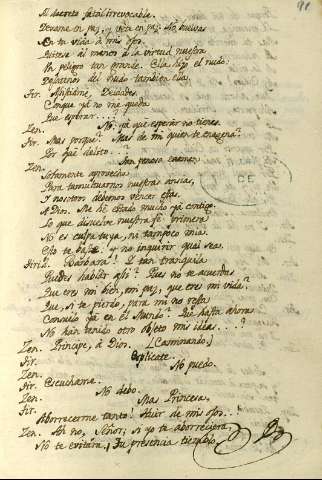 91
Al decreto fatal irrevocable.
Dexame en paz, y vete en paz: No vuelvas
En tu vida à mis ojos
Quitese al menos à la virtud nuestra
Un peligro tan grande. Ella hizo el nudo:
del nudo tambien Ella.
Tir. Asistidme, Deidades.
Conque ya no me queda
Que esperar...?
Zen. No; ya que esperar no tienes.
Tir. Mas porque? Mas de mi quien te enagena?
Por qué delito..?
Zen. Tan penoso examen
Solamente aprovecha
Para tumultuarnos nuestras ansias,
Y nosotros debemos vencer estas.
A Dios. Me he estado mucho ya contigo.
Lo que disuelve nuestra fé primera
No es culpa tuya, ni tampoco mia.
Esto te baste: y no inquirir qual sea.
Tirid. Bárbara! Y tan tranquila
Puedes hablar assi? Pues no te acuerdas
Que eres mi bien, mi paz, que eres mi vida?
Que, si te pierdo, para mi no resta
Consuelo ya en el Mundo? Que hasta ahora
No han tenido otro objeto mis ideas...?
Zen. Principe, à Dios. (Caminando.)
Tir. Explicate.
Zen. No puedo.
Tir. Escuchame.
Zen. No debo.
Tir. Mas Princesa,
Aborrecerme tanto! Huir de mis ojos..!
Zen. Ah no, Señor; si yo te aborreciera,
No te evitára. Tu presencia